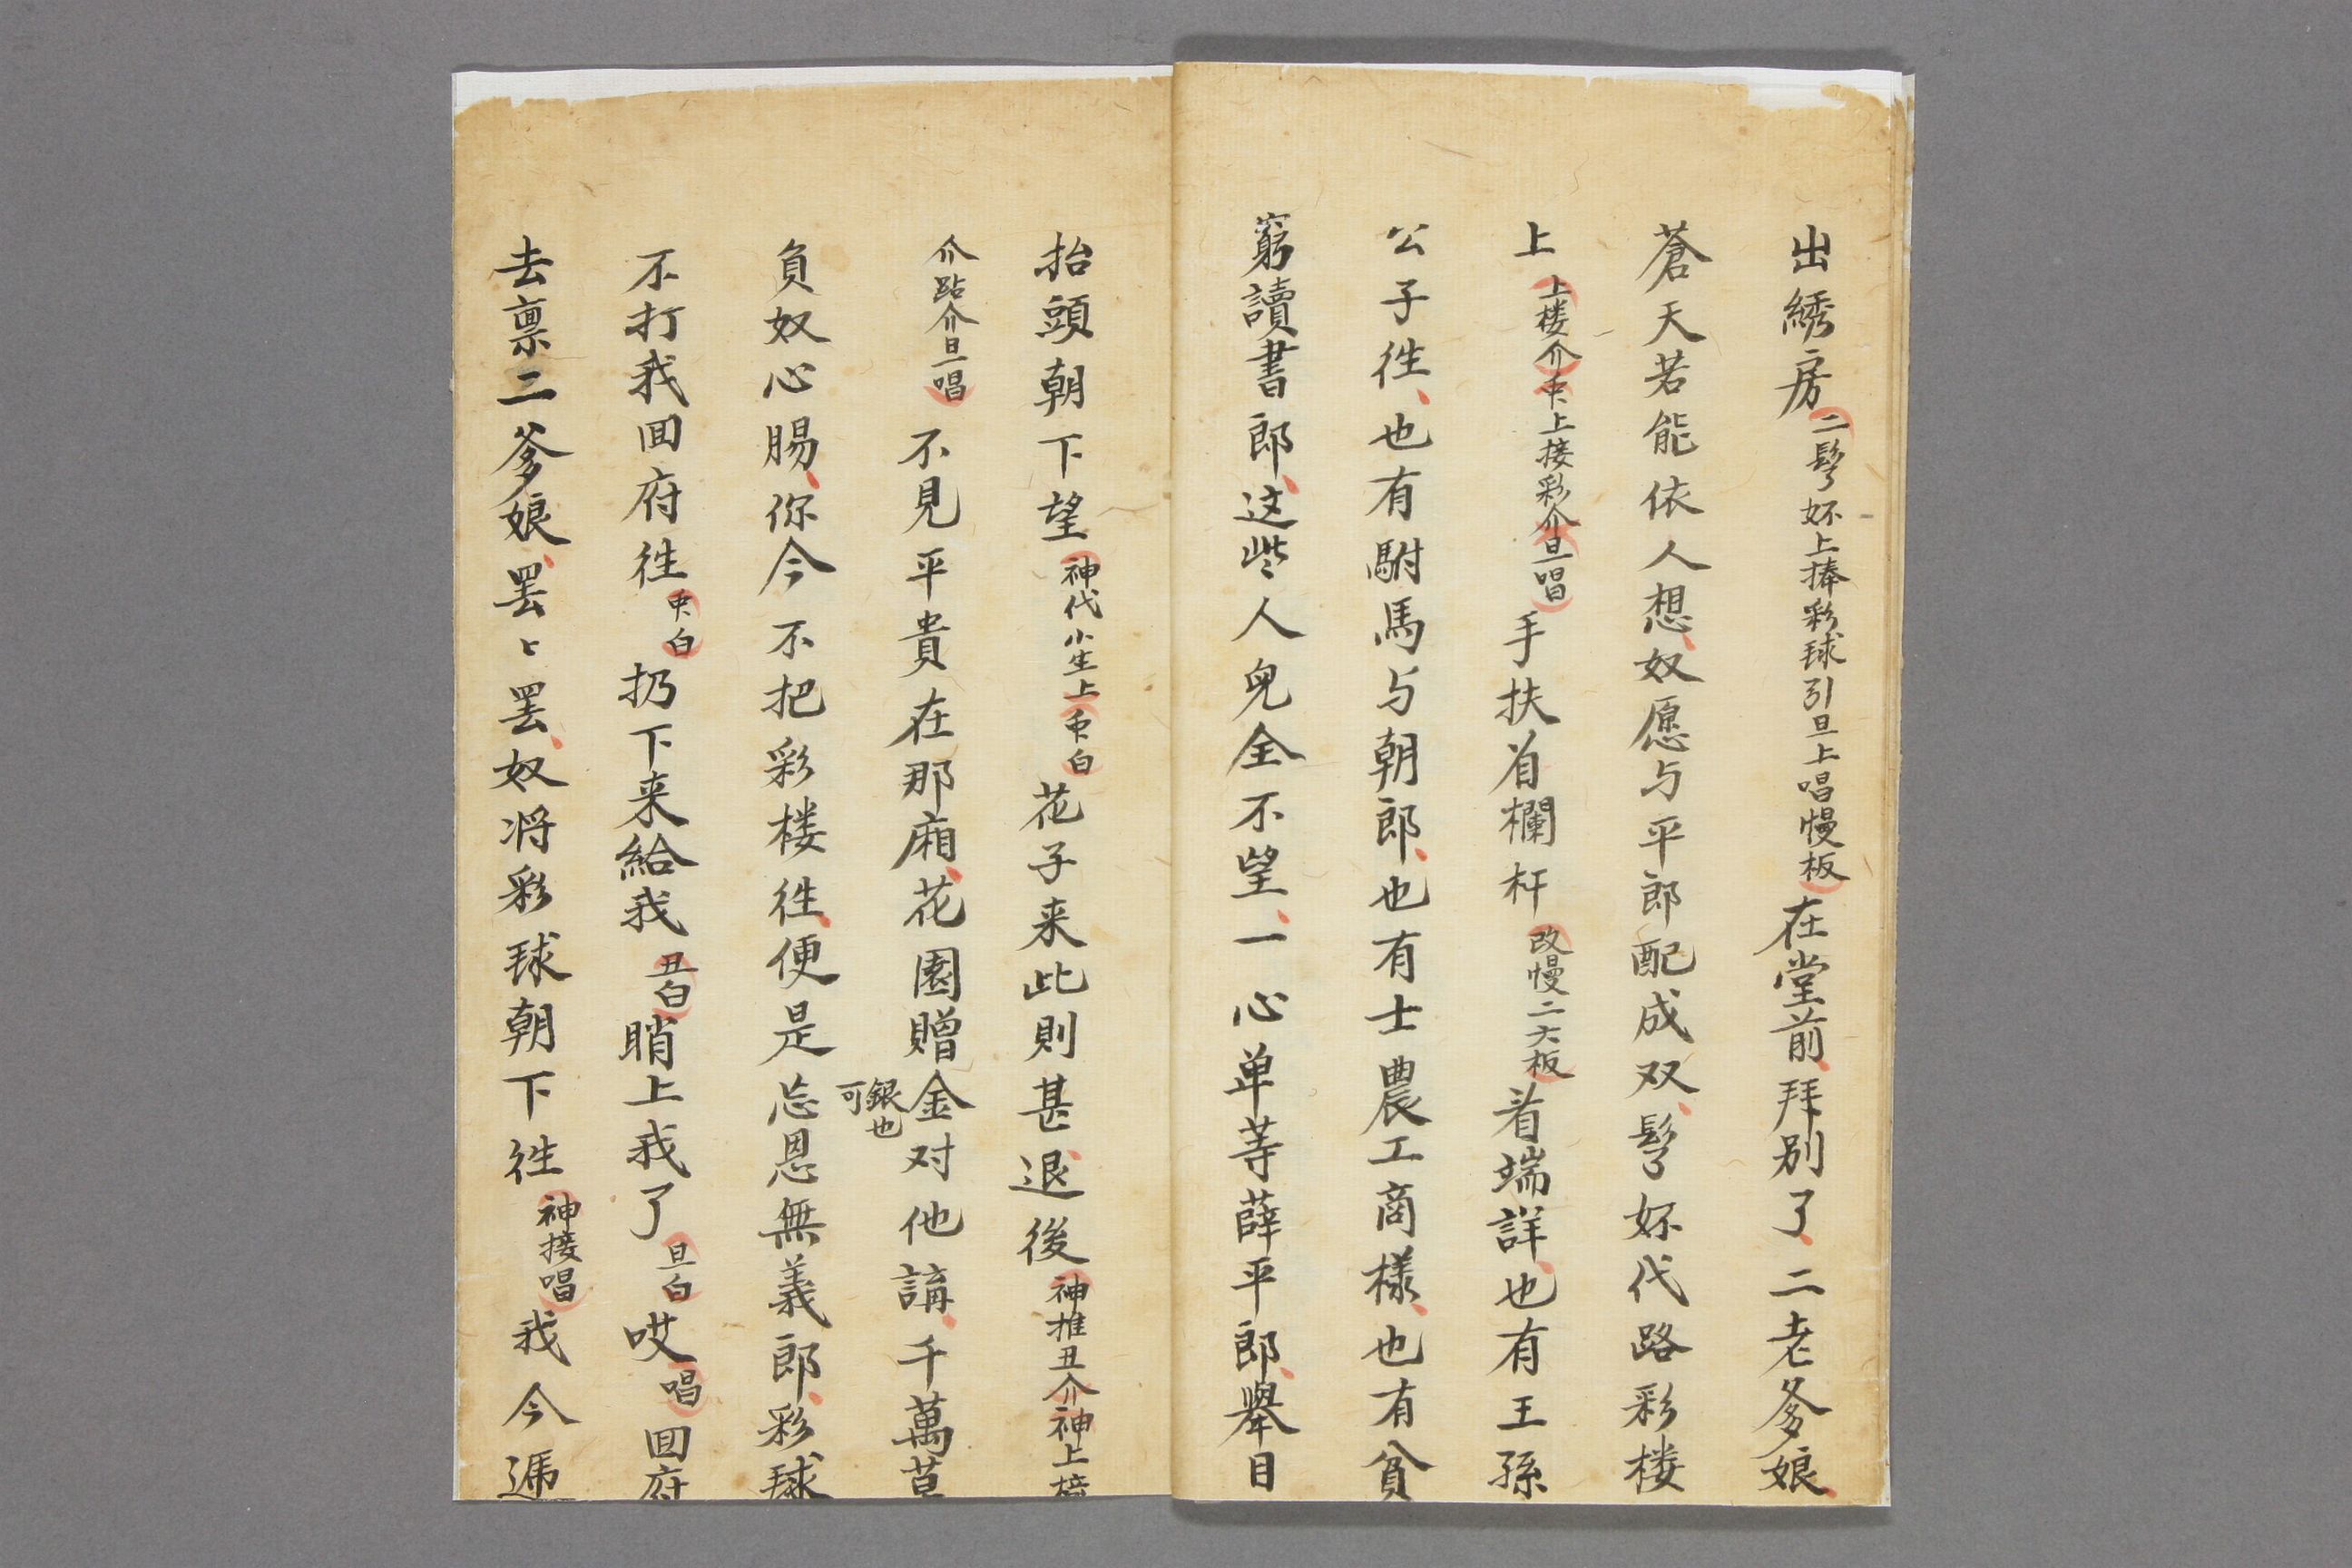 出綉房二髩妚上捧彩球引旦上唱慢板在堂前拜别了二老爹娘
蒼天若能依人想奴愿与平郎配成双髩妚代路彩楼
上上楼介上接彩介旦唱手扶着欄杆改慢二六板着端詳也有王孫
公子徃也有駙馬与朝郎也有士農工商樣也有貧
窮讀書郎这些人兒全不望一心单等薛平郎舉目
抬頭朝下望神代小生上白花子来此則甚退後神推丑介神上
介跕介旦唱不見平貴在那廂花園贈金銀也可对他講千萬莫
負奴心腸你今不把彩楼徃便是忘恩無義郎彩球
不打我回府徃白扔下来給我丑白哨上我了旦白哎唱回府
去禀二爹娘罢〻罢奴将彩球朝下徃神接唱我今遞